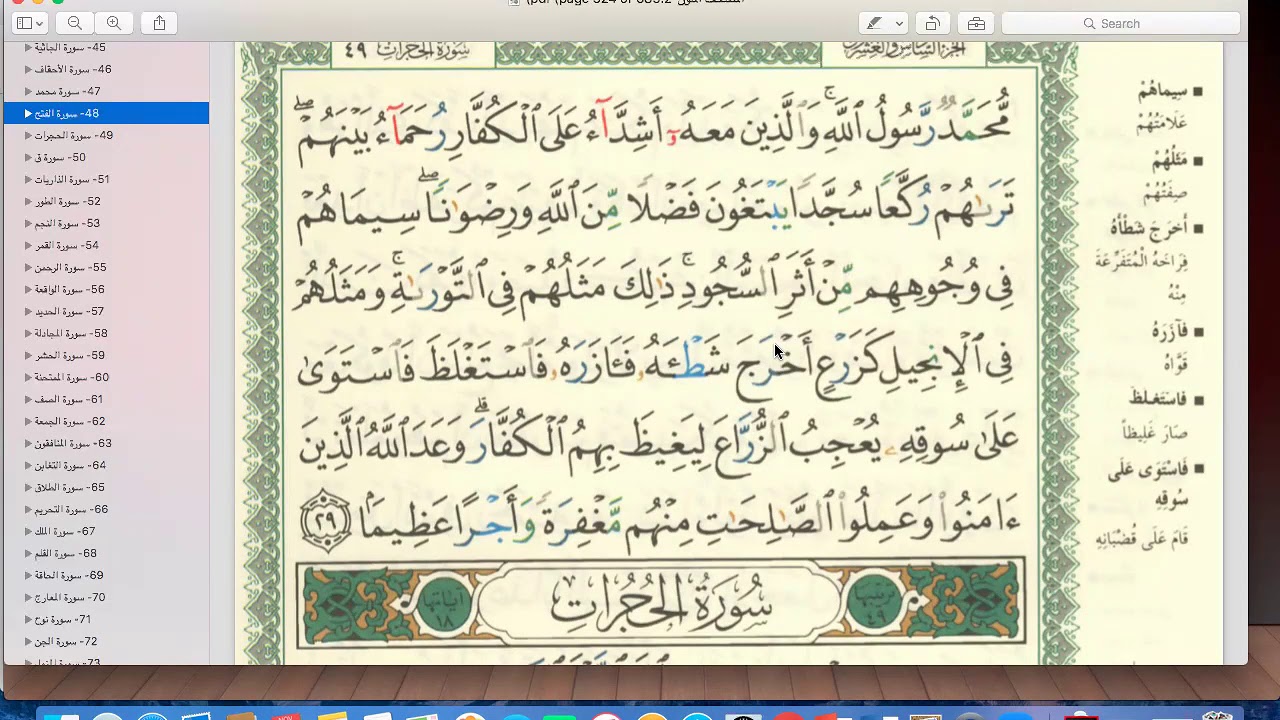 Search
45- سورة الجاثية
46- سورة الأحقاف
47- سورة محمد
48- سورة الفتح
49- سورة الحجرات
50- سورة ق
51- سورة الذاريات
52- سورة الطور
53- سورة النجم
54- سورة القمر
55- سورة الرحمن
56- سورة الواقعة
57- سورة الحديد
58- سورة المجادلة
59- سورة الحشر
60- سورة الممتحنة
61- سورة الصف
62- سورة الجمعة
63- سورة المنافقون
64- سورة التغابن
65- سورة الطلاق
66- سورة التحريم
67- سورة الملك
68- سورة القلم
69- سورة الحاقة
70- سورة المعارج
71- سورة نوح
72- سورة الجن
الجزء السادس والعشرون
سورة الحجرات ٤٩
مُّحَمَّدٌ رَّسُولُ ٱللَّهِ ۚ وَٱلَّذِينَ مَعَهُۥٓ أَشِدَّآءُ عَلَى ٱلْكُفَّارِ رُحَمَآءُ بَيْنَهُمْ ۖ
تَرَىٰهُمْ رُكَّعًا سُجَّدًا يَبْتَغُونَ فَضْلًا مِّنَ ٱللَّهِ وَرِضْوَٰنًا ۖ سِيمَاهُمْ
فِى وُجُوهِهِم مِّنْ أَثَرِ ٱلسُّجُودِ ۚ ذَٰلِكَ مَثَلُهُمْ فِى ٱلتَّوْرَىٰةِ ۚ وَمَثَلُهُمْ
فِى ٱلْإِنجِيلِ كَزَرْعٍ أَخْرَجَ شَطْـَٔهُۥ فَـَٔازَرَهُۥ فَٱسْتَغْلَظَ فَٱسْتَوَىٰ
عَلَىٰ سُوقِهِۦ يُعْجِبُ ٱلزُّرَّاعَ لِيَغِيظَ بِهِمُ ٱلْكُفَّارَ ۗ وَعَدَ ٱللَّهُ ٱلَّذِينَ
ءَامَنُوا۟ وَعَمِلُوا۟ ٱلصَّٰلِحَٰتِ مِنْهُم مَّغْفِرَةً وَأَجْرًا عَظِيمًۢا ٢٩
ترتيبها ٤٩
سُورَةُ الحُجُرَاتِ
آياتها ١٨
سِيمَاهُمْ
عَلَامَتُهُمْ
مَثَلُهُمْ
صِفَتُهُمْ
أَخْرَجَ شَطْأَهُ
فِرَاخَهُ الْمُتَفَرِّعَةَ
مِنْهُ
فَآزَرَهُ
قَوَّاهُ
فَاسْتَغْلَظَ
صَارَ غَلِيظاً
فَاسْتَوَى عَلَى
سُوقِهِ
قَامَ عَلَى قُضْبَانِهِ